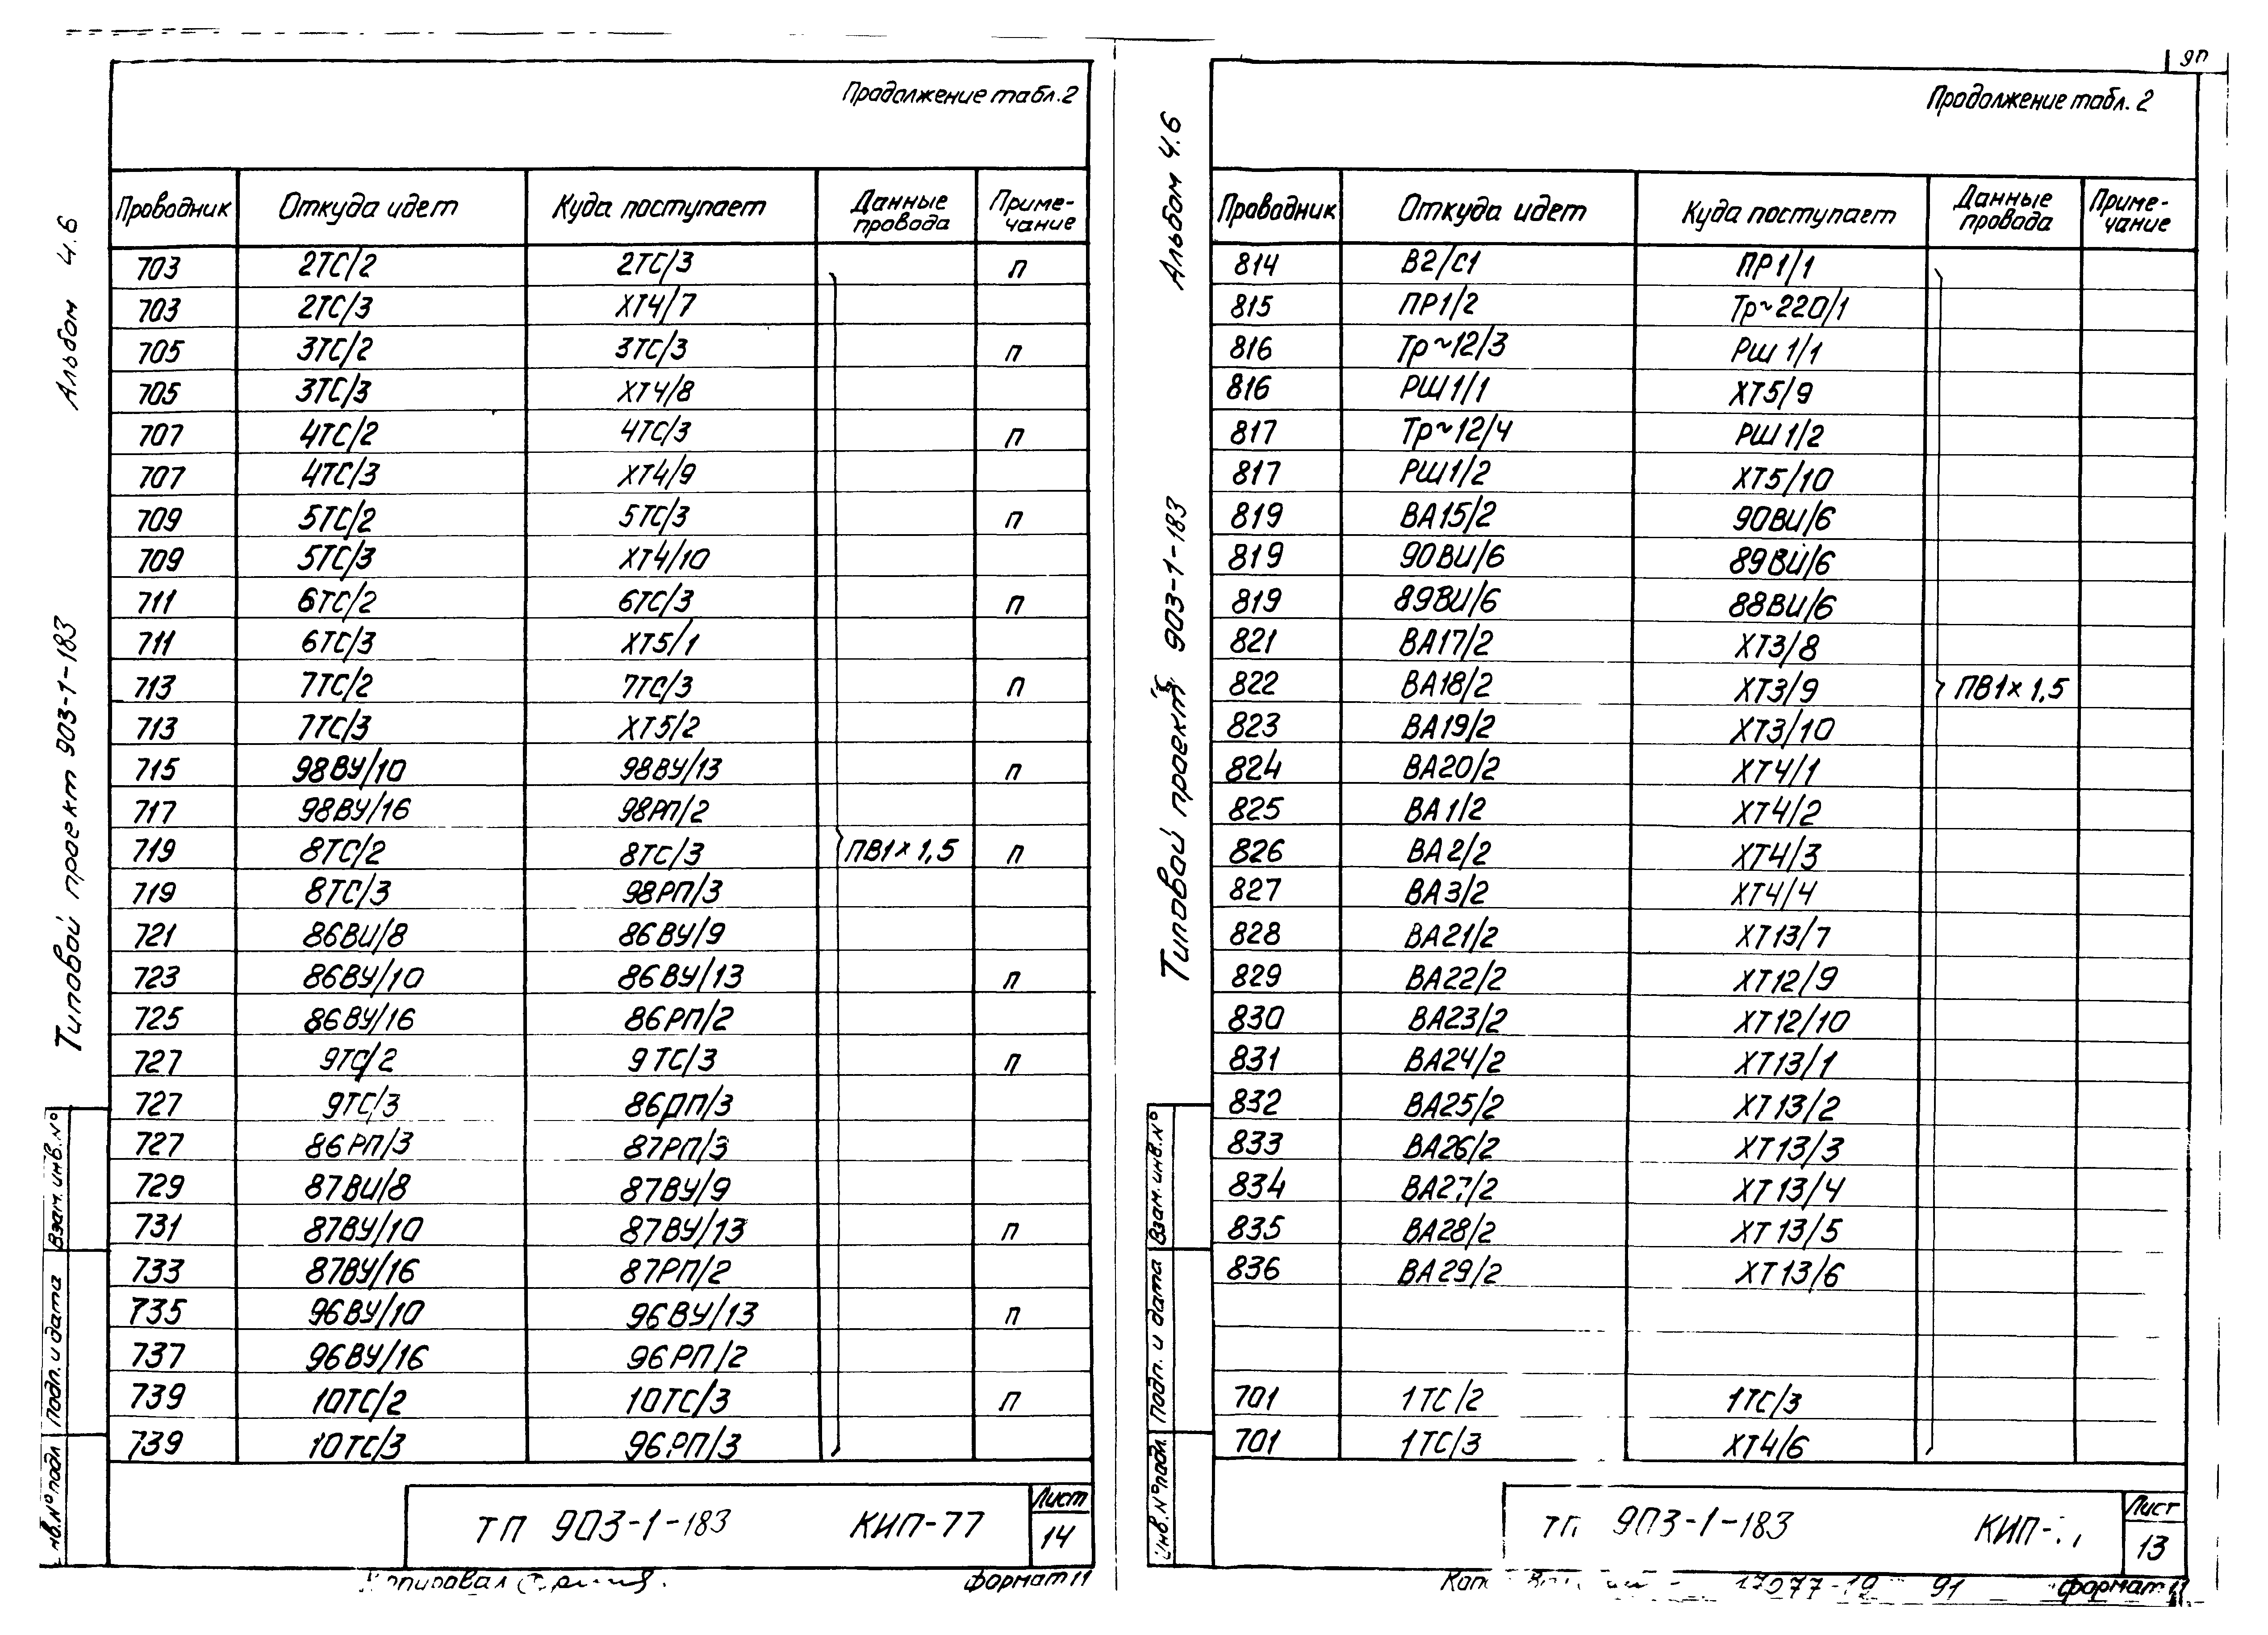 Продолжение табл.2
Альбом 4.6
Типовой проект 903-1-183
Проводник Откуда идет Куда поступает Данные провода Приме-чание
703 2ТС/2 2ТС/3 п
703 2ТС/3 ХТ4/7
705 3ТС/2 3ТС/3 п
705 3ТС/3 ХТ4/8
707 4ТС/2 4ТС/3 п
707 4ТС/3 ХТ4/9
709 5ТС/2 5ТС/3 п
709 5ТС/3 ХТ4/10
711 6ТС/2 6ТС/3 п
711 6ТС/3 ХТ5/1
713 7ТС/2 7ТС/3 п
713 7ТС/3 ХТ5/2
715 98ВУ/10 98ВУ/13 п
717 98ВУ/16 98РП/2
719 8ТС/2 8ТС/3 ПВ1×1,5 п
719 8ТС/3 98РП/3
721 86ВИ/8 86ВУ/9
723 86ВУ/10 86ВУ/13 п
725 86ВУ/16 86РП/2
727 9ТС/2 9ТС/3 п
727 9ТС/3 86РП/3
727 86РП/3 87РП/3
729 87ВИ/8 87ВУ/9
731 87ВУ/10 87ВУ/13 п
733 87ВУ/16 87РП/2
735 96ВУ/10 96ВУ/13 п
737 96ВУ/16 96РП/2
739 10ТС/2 10ТС/3 п
739 10ТС/3 96РП/3
Взам. инв. №
Подп. и дата
Инв. № подл
ТП 903-1-183 КИП-77 Лист 14
Копировал
Формат 11
90
Продолжение табл. 2
Альбом 4.6
Типовой проект 903-1-183
Проводник Откуда идет Куда поступает Данные провода Приме-чание
814 В2/С1 ПР1/1
815 ПР1/2 Тр~220/1
816 Тр~12/3 РШ1/1
816 РШ1/1 ХТ5/9
817 Тр~12/4 РШ1/2
817 РШ1/2 ХТ5/10
819 ВА15/2 90ВИ/6
819 90ВИ/6 89ВИ/6
819 89ВИ/6 88ВИ/6
821 ВА17/2 ХТ3/8
822 ВА18/2 ХТ3/9 ПВ1×1,5
823 ВА19/2 ХТ3/10
824 ВА20/2 ХТ4/1
825 ВА1/2 ХТ4/2
826 ВА2/2 ХТ4/3
827 ВА3/2 ХТ4/4
828 ВА21/2 ХТ13/7
829 ВА22/2 ХТ12/9
830 ВА23/2 ХТ12/10
831 ВА24/2 ХТ13/1
832 ВА25/2 ХТ13/2
833 ВА26/2 ХТ13/3
834 ВА27/2 ХТ13/4
835 ВА28/2 ХТ13/5
836 ВА29/2 ХТ13/6
701 1ТС/2 1ТС/3
701 1ТС/3 ХТ4/6
Взам. инв. №
Подп. и дата
Инв. № подл.
ТП 903-1-183 КИП- Лист 13
91
Формат 11